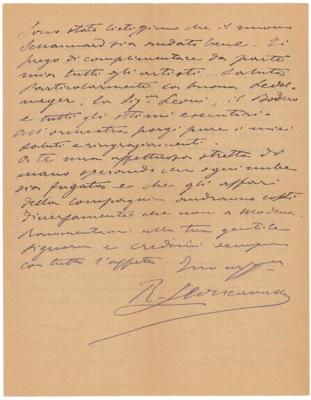 Sono stato lietissimo che il nuovo
Schaunard sia andato bene. Ti
prego di complimentare da parte
mia tutti gli artisti. Saluta
particolarmente la buona
la Sig.na Leoni, il Bodero
e tutti gli ottimi esecutori.
All'orchestra porgi pure i miei
saluti e ringraziamenti.
A te una affettuosa stretta di
mano sperando che ogni nube
sia fugata e che gli affari
della compagnia andranno costì
diversamente che non a Modena.
Rammentami alla tua gentile
Signora e credimi sempre
con tutto l'affetto
R. Leoncavallo